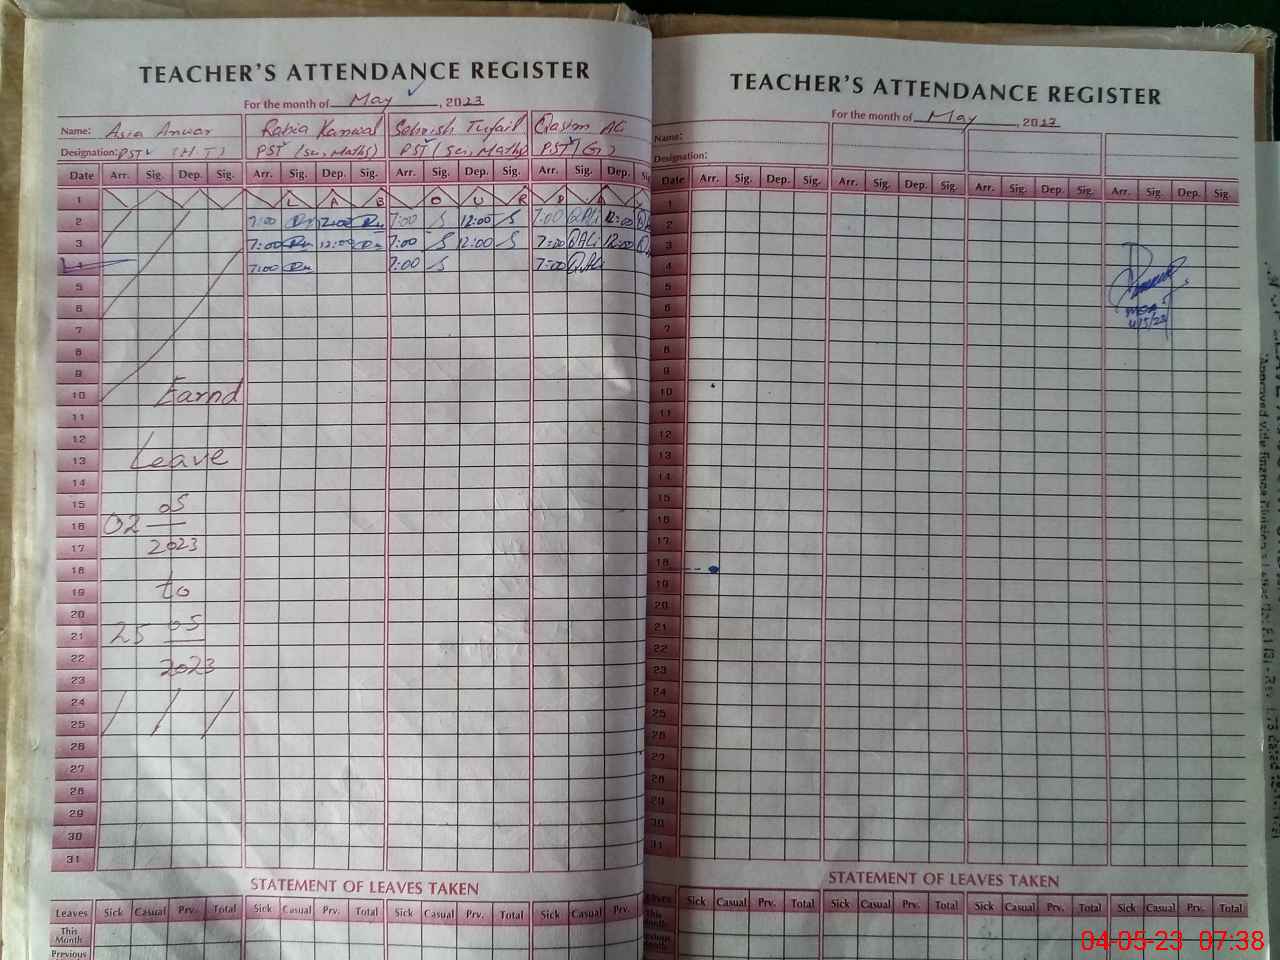 TEACHER'S ATTENDANCE REGISTER
For the month of May, 2023
Name: Asia Anwar Rabia Kanwal Sehrish Tufail Qasim Ali
Designation: PST (H.T) PST (Sc, Maths) PST (Sc, Maths) PST (G)
Date Arr. Sig. Dep. Sig. Arr. Sig. Dep. Sig. Arr. Sig. Dep. Sig. Arr. Sig. Dep. Sig.
1 L A B O U R D A Y
2 7:00 Rn 12:00 Rn 7:00 S 12:00 S 7:00 QAli 12:00
3 7:00 Rn 12:00 Rn 7:00 S 12:00 S 7:00 QAli 12:00
4 7:00 Rn 7:00 S 7:00 QAli
5
6
7
8
9
10 Earnd
11
12
13 Leave
14
15 05
16 02
17 2023
18
19 to
20
21 25 05
22 2023
23
24
25
26
27
28
29
30
31
STATEMENT OF LEAVES TAKEN
Leaves Sick Casual Prv. Total Sick Casual Prv. Total Sick Casual Prv. Total Sick Casual Prv.
This Month
Previous
TEACHER'S ATTENDANCE REGISTER
For the month of May, 2023
Name:
Designation:
Date Arr. Sig. Dep. Sig. Arr. Sig. Dep. Sig. Arr. Sig. Dep. Sig. Arr. Sig. Dep. Sig.
1
2
3
4
5
6
7
8
9
10
11
12
13
14
15
16
17
18
19
20
21
22
23
24
25
26
27
28
29
30
31
4/5/23
STATEMENT OF LEAVES TAKEN
Leaves Sick Casual Prv. Total Sick Casual Prv. Total Sick Casual Prv. Total Sick Casual Prv. Total
This Month
Previous Month
04-05-23 07:38